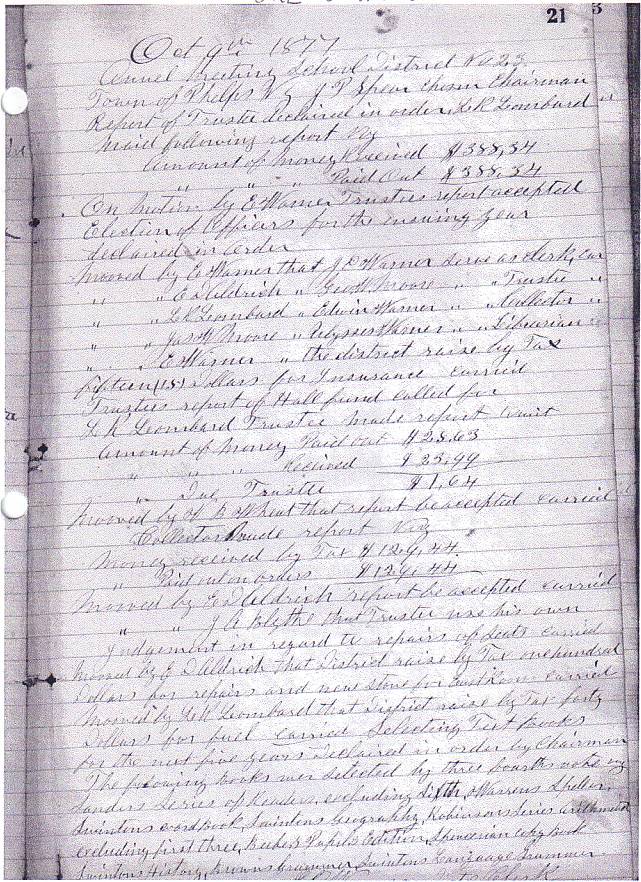 21
Oct 9th 1877
Annuel Meeting School District No 23
Town of Phelps Viz J P Spear Chosen Chairman
Report of Trustee declaired in order, L R Lombard
maid following report Viz
Amount of Money Received $388,34
" " " Paid Out $388,34
On Motion by E Warner Trustees report accepted
Election of Officers for the ensuing year
declaired in order
Moved by E Warner that J C Warner serve as clerk, car
" " E D Aldrich " Geo W Moore " " Trustee "
" " L R Lombard " Edwin Warner " " Collector "
" " Jas W Moore " Ulysses Warner " " Librarian "
" " E Warner " the district raise by Tax
fifteen (15) Dollars for Insurance carried
Trustees report of Hall fund called for
L R Lombard Trustee made report
Amount of Money Paid out $25.63
" " " Received $23.99
" Due Trustee $1.64
Moved by B Wheat that report be accepted carried
Collector made report Viz
Money received by Tax $129,44
" Paid out on orders $129,44
Moved by E D Aldrich report be accepted carried
" " J A Blythe that Trustee use his own
Judgement in regard to repairs of Seats carried
Moved by E D Aldrich that District raise by Tax one hundred
Dollars for repairs and new stove for East Room carried
Moved by L R Lombard that District raise by Tax forty
Dollars for fuel carried Selecting Text Books
for the next five years declaired in order by Chairman
The following Books wer selected by three fourths vote viz
Sanders Series of Readers, excluding Sixth, Warrens Speller,
Swintons word Book, Swintons Geography, Robinsons Series Arithmetic
excluding first three, Pupils Edition, Spencerian copy Book
Swintons History, Browns Grammer, Swintons Language Grammer
Clerk